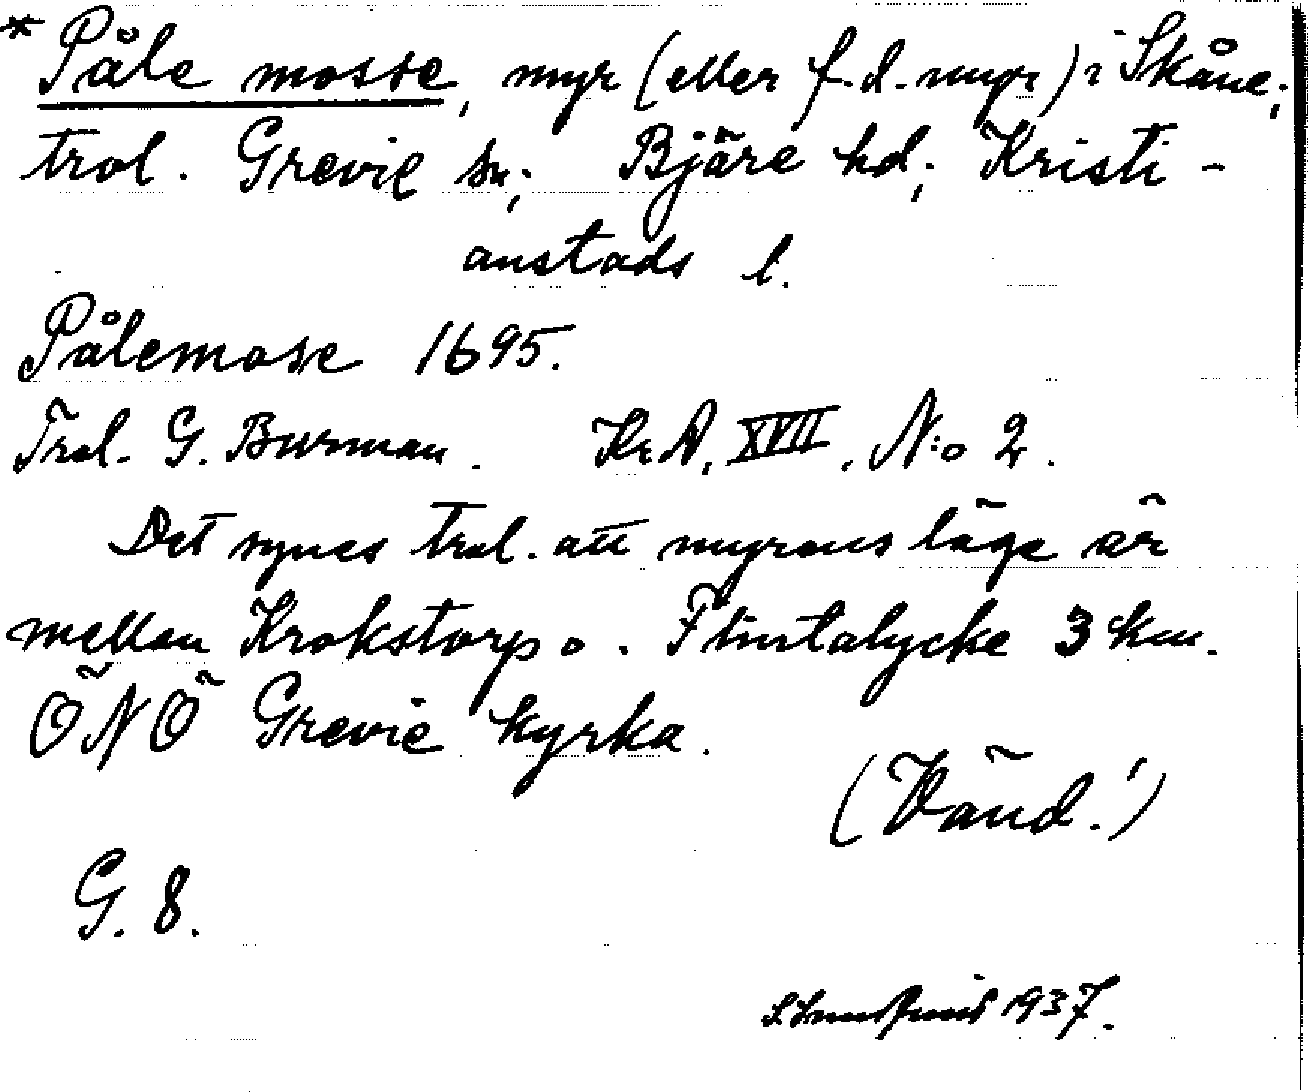 * Påle mosse, myr (eller f.d. myr) i Skåne;
trol. Grevie sn; Bjäre hd; Kristi-
anstads l.
Pålemose 1695.
Trol. G. Burman. Kr.A. XVII, N:o 2.
Det synes trol. att myrens läge är
mellan Krokstorp o. Flintalycke 3 km.
ÖNÖ Grevie kyrka.
(Vänd!)
G. 8.
1937.